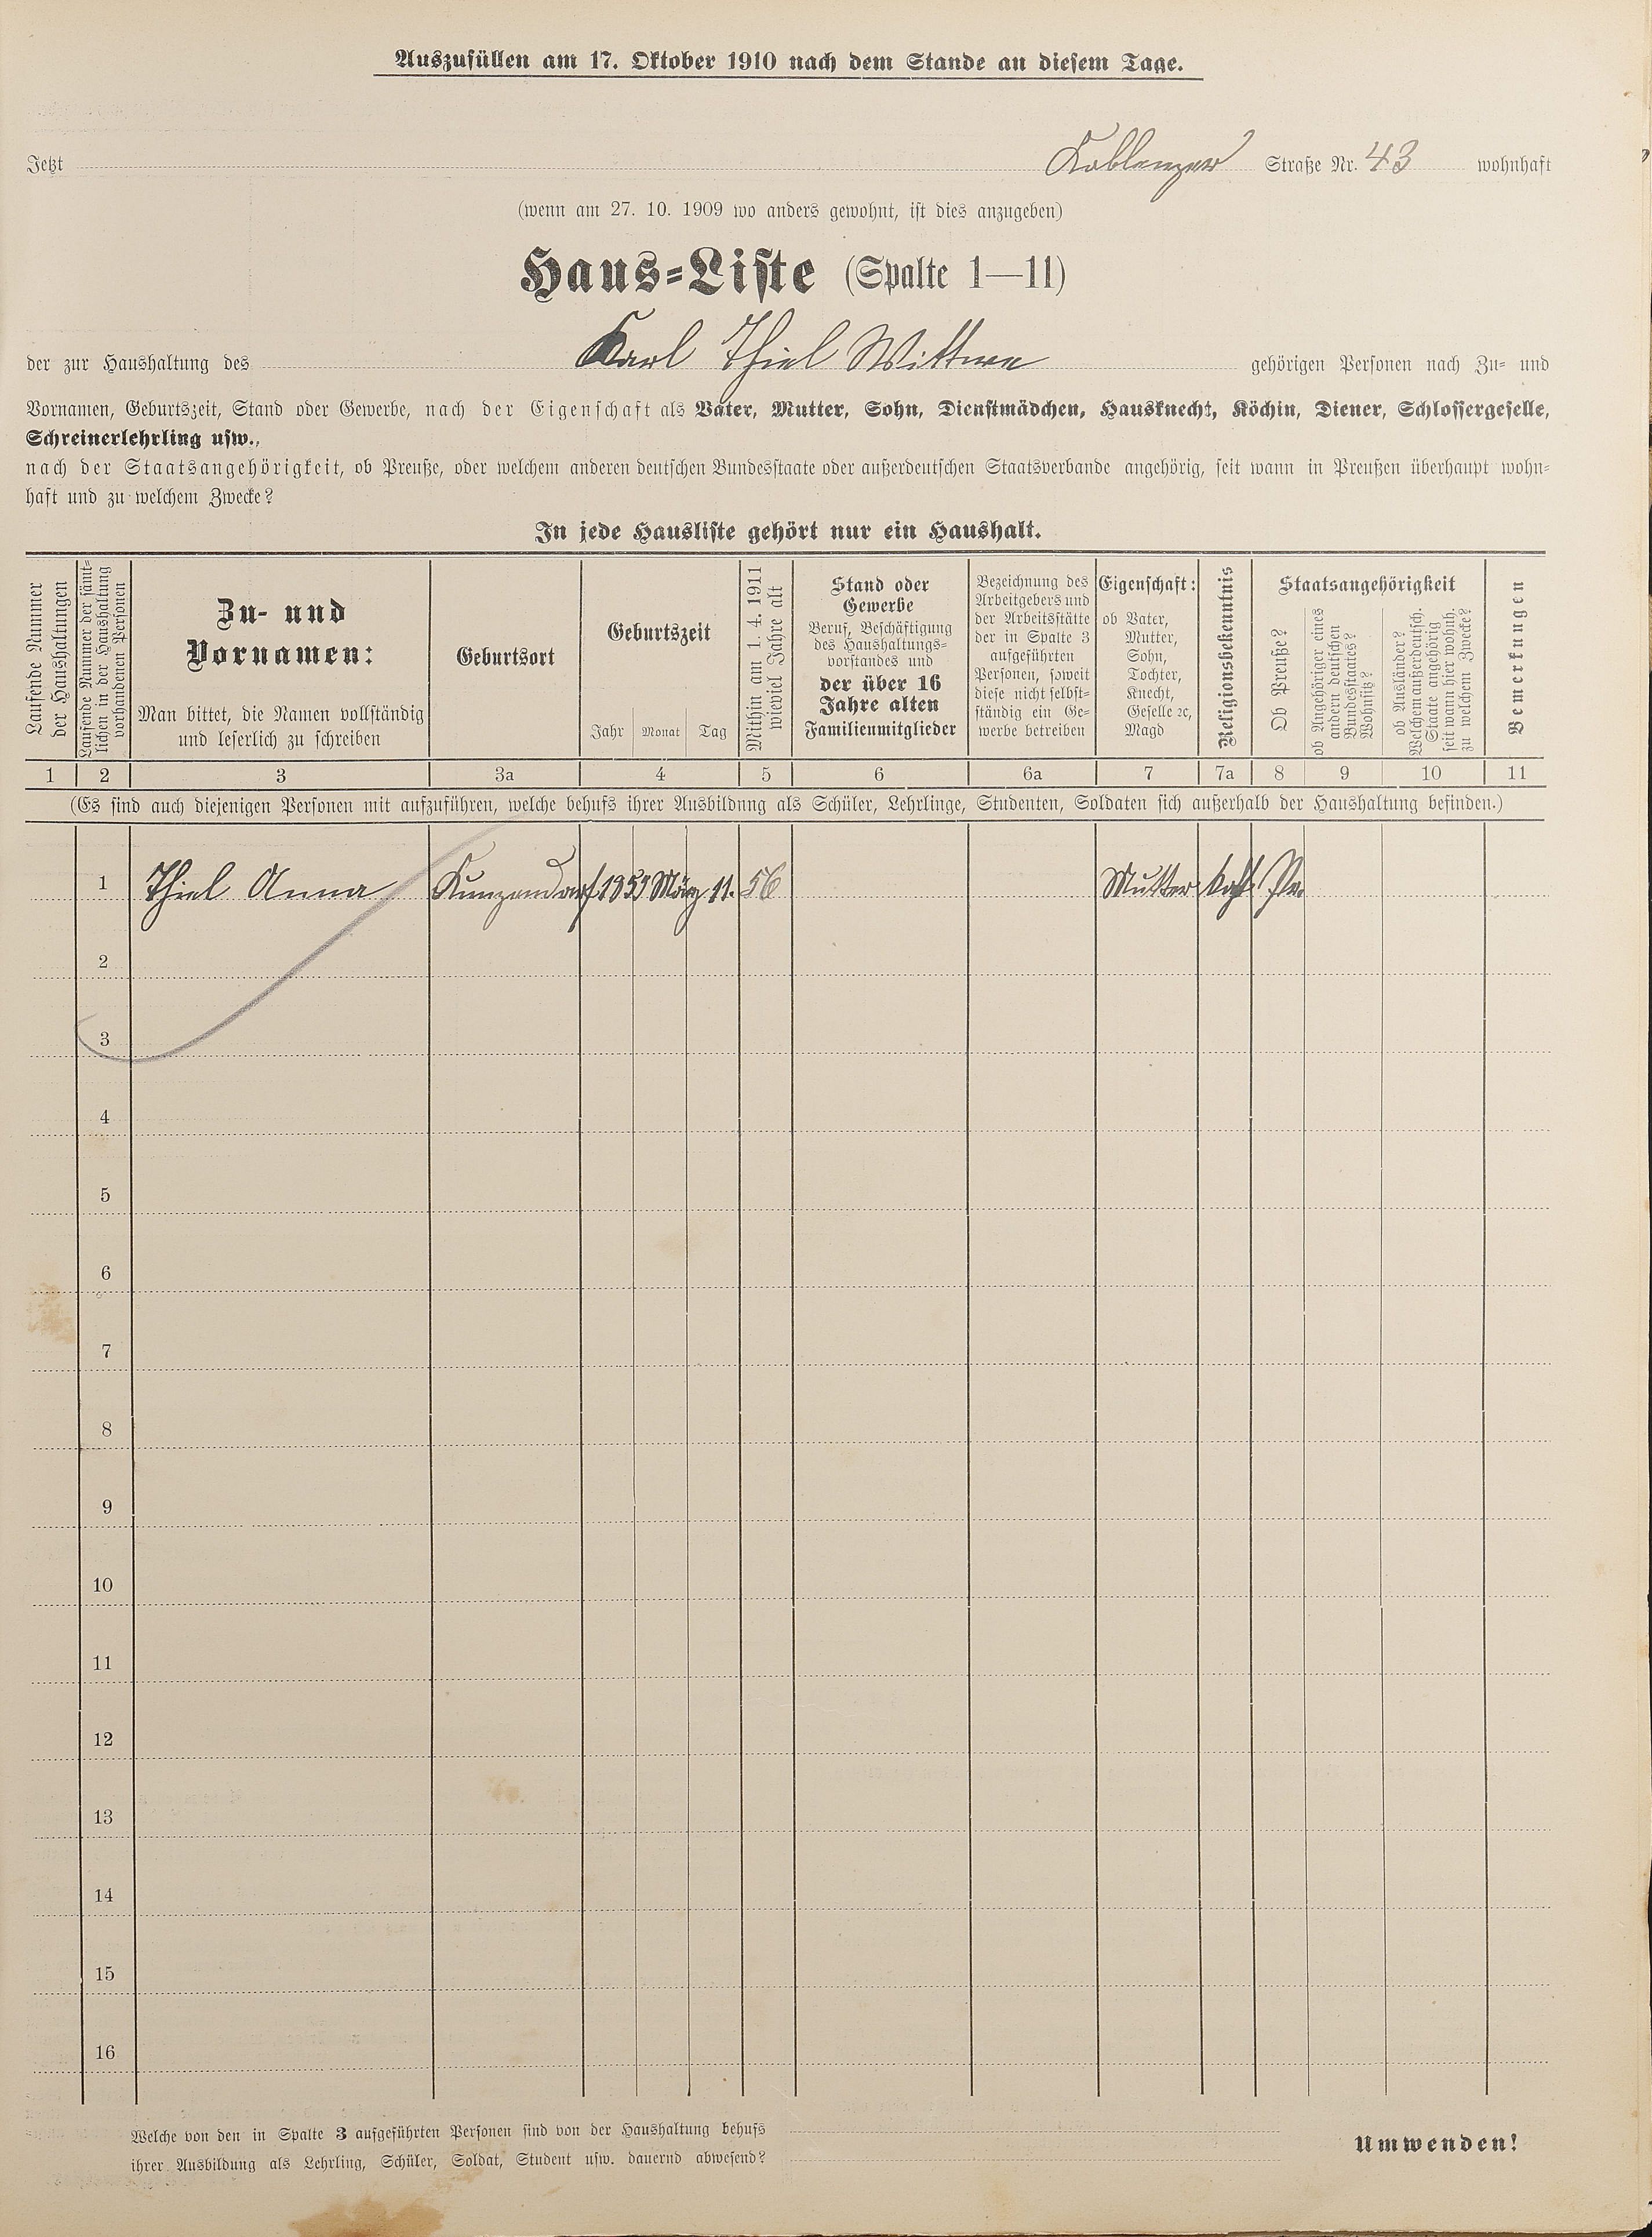 Auszufüllen am 17. Oktober 1910 nach dem Stande an diesem Tage.
Jetzt Koblenzer Straße Nr. 43 wohnhaft
(wenn am 27. 10. 1909 wo anders gewohnt, ist dies anzugeben)
Haus=Liste (Spalte 1—11)
der zur Haushaltung des Karl Thiel Wittwe gehörigen Personen nach Zu= und
Vornamen, Geburtszeit, Stand oder Gewerbe, nach der Eigenschaft als Vater, Mutter, Sohn, Dienstmädchen, Hausknecht, Köchin, Diener, Schlossergeselle,
Schreinerlehrling usw.,
nach der Staatsangehörigkeit, ob Preuße, oder welchem anderen deutschen Bundesstaate oder außerdeutschen Staatsverbande angehörig, seit wann in Preußen überhaupt wohn=
haft und zu welchem Zwecke?
In jede Hausliste gehört nur ein Haushalt.
Laufende Nummer
der Haushaltungen
Laufende Nummer der sämt=
lichen in der Haushaltung
vorhandenen Personen
Zu- und
Vornamen:
Man bittet, die Namen vollständig
und leserlich zu schreiben
Geburtsort
Geburtszeit
Jahr Monat Tag
Mithin am 1. 4. 1911
wieviel Jahre alt
Stand oder
Gewerbe
Beruf, Beschäftigung
des Haushaltungs=
vorstandes und
der über 16
Jahre alten
Familienmitglieder
Bezeichnung des
Arbeitgebers und
der Arbeitsstätte
der in Spalte 3
aufgeführten
Personen, soweit
diese nicht selbst=
ständig ein Ge=
werbe betreiben
Eigenschaft:
ob Vater,
Mutter,
Sohn,
Tochter,
Knecht,
Geselle ꝛc,
Magd
Religionsbekenntnis
Staatsangehörigkeit
Ob Preuße?
ob Angehöriger eines
andern deutschen
Bundesstaates?
Wohnsitz?
ob Ausländer?
Welchem außerdeutsch.
Staate angehörig
seit wann hier wohnh.
zu welchem Zwecke?
Bemerkungen
1 2 3 3a 4 5 6 6a 7 7a 8 9 10 11
(Es sind auch diejenigen Personen mit aufzuführen, welche behufs ihrer Ausbildung als Schüler, Lehrlinge, Studenten, Soldaten sich außerhalb der Haushaltung befinden.)
1 Thiel Anna Kunzendorf März 11. 56 Mutter kath. Pr.
2
3
4
5
6
7
8
9
10
11
12
13
14
15
16
Welche von den in Spalte 3 aufgeführten Personen sind von der Haushaltung behufs
ihrer Ausbildung als Lehrling, Schüler, Soldat, Student usw. dauernd abwesend?
Umwenden!